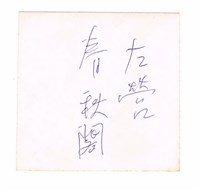 左營
春秋閣